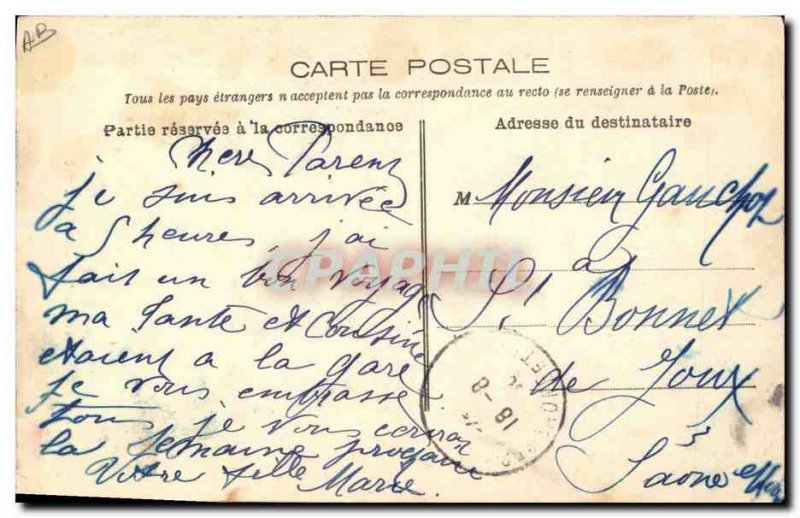 A.B
CARTE POSTALE
Tous les pays étrangers n'acceptent pas la correspondance au recto (se renseigner à la Poste).
Partie réservée à la correspondance
Adresse du destinataire
Chers Parents
je suis arrivée
a 5 heures, j'ai
fait un bon voyage
ma Tante et Cousine
etaient a la gare
Je vous embrasse
tous je vous ecrirai
la Semaine prochaine
Votre fille
Marie.
M Monsieur Gauchoz
a
St Bonnet
de Joux
Saone et Loire
CPAPHIL
18-8